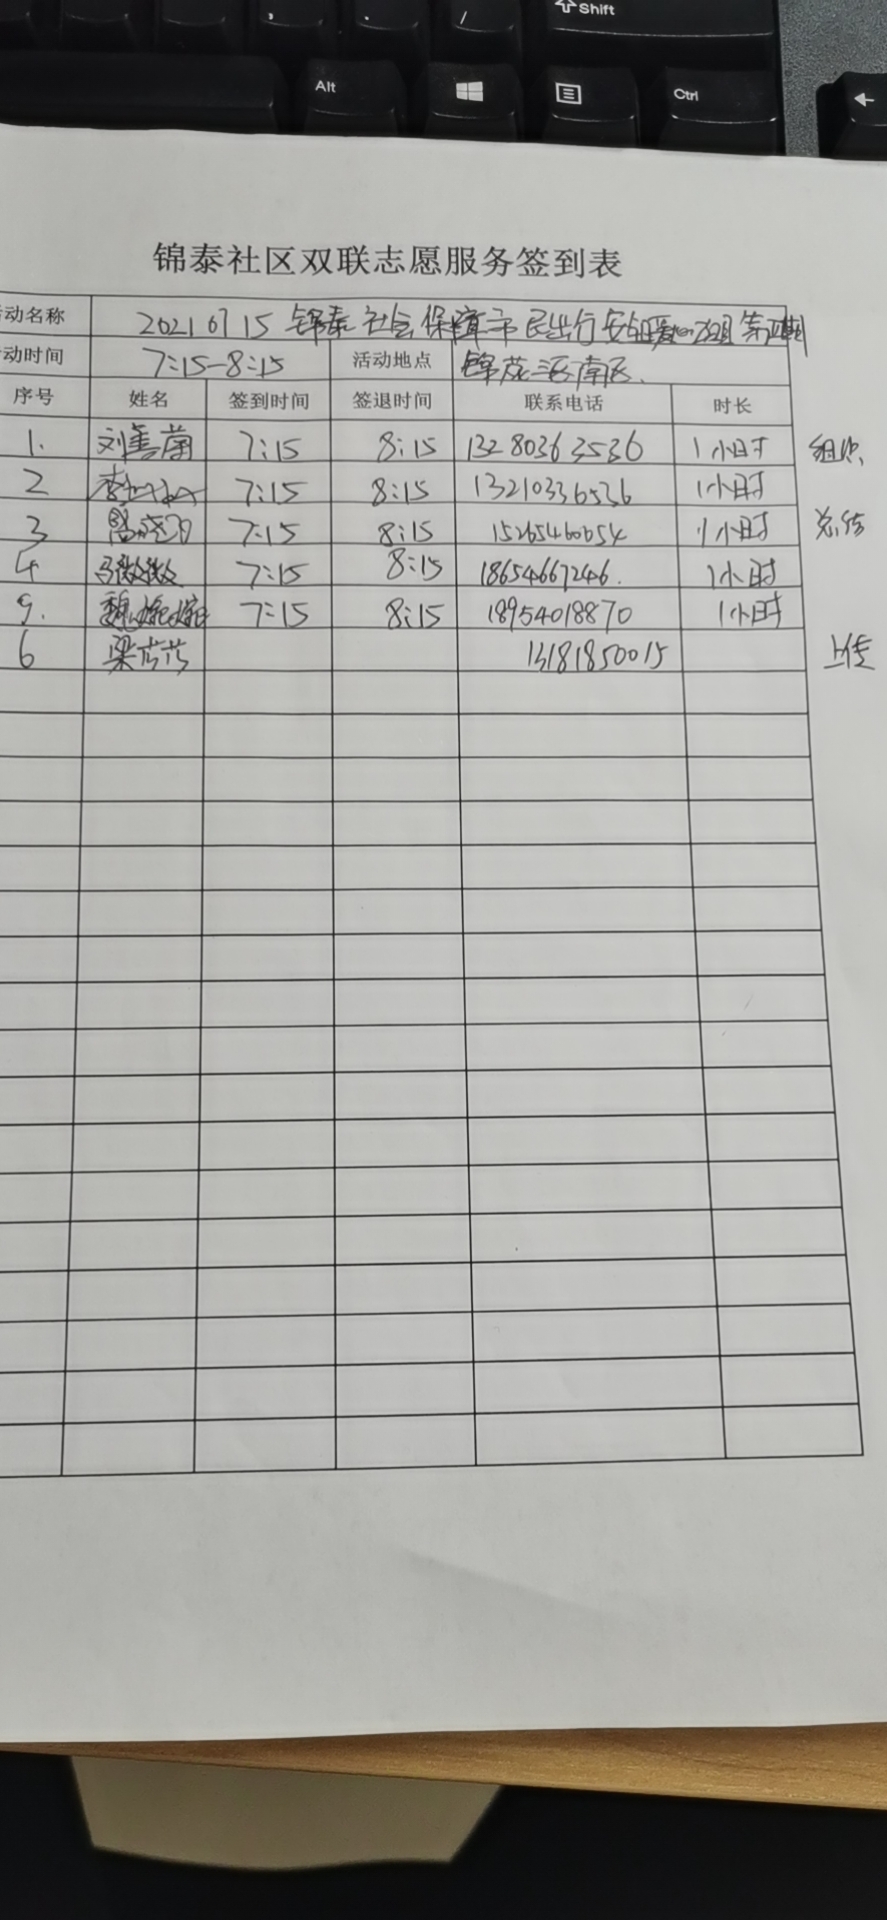 , . / Shift
Alt Ctrl
锦泰社区双联志愿服务签到表
动名称 20210715 锦泰社会保障市民出行安全暖心
动时间 7:15-8:15 活动地点 锦苑三区南区
序号 姓名 签到时间 签退时间 联系电话 时长
1. 刘善菊 7:15 8:15 13280363536 1小时 组织
2 李 7:15 8:15 13210336536 1小时
3 7:15 8:15 15265460654 1小时 总结
4 马微微 7:15 8:15 18654667246. 1小时
5. 魏婷婷 7:15 8:15 18954018870 1小时
6 梁芯芯 13181850015 上传